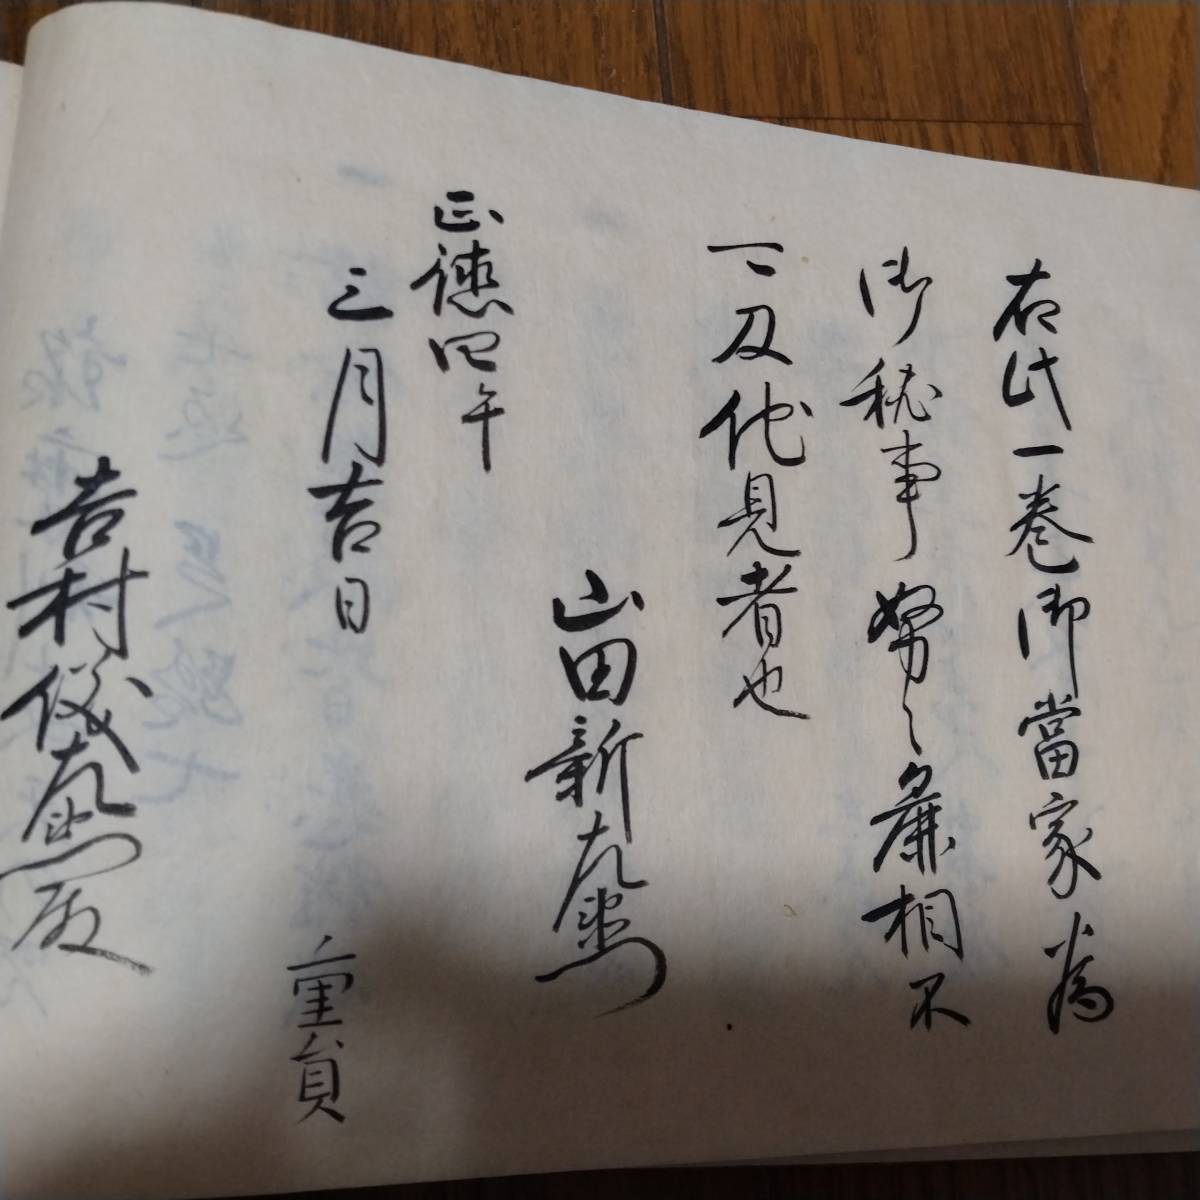 右此一巻御當家為
御秘事努々麁相不
可及他見者也
山田新左衛門
正徳四午
三月吉日
重員
吉村儀左衛門殿